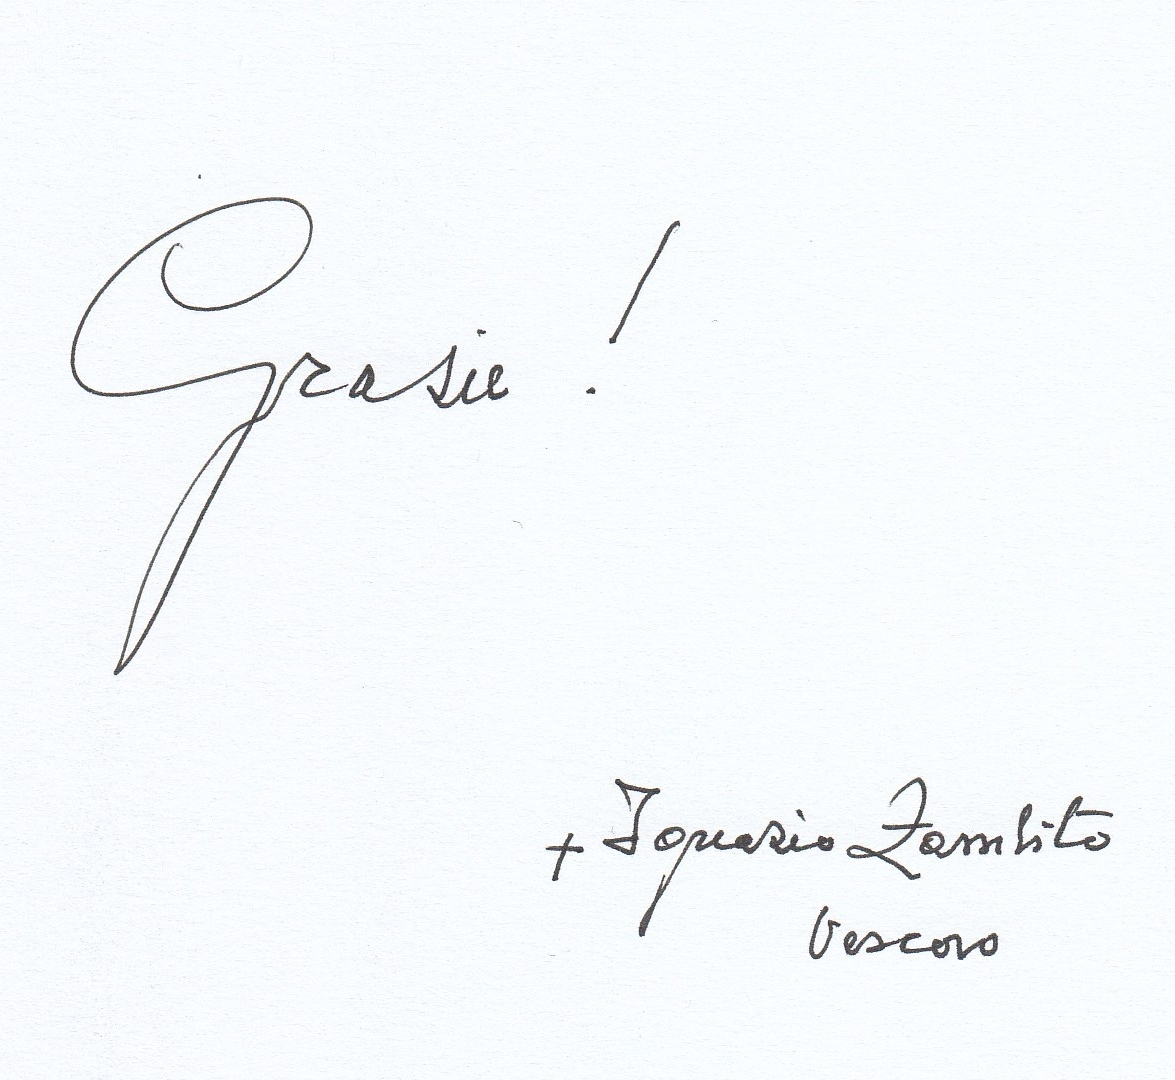 Grazie !
+ Ignazio Zambito
Vescovo